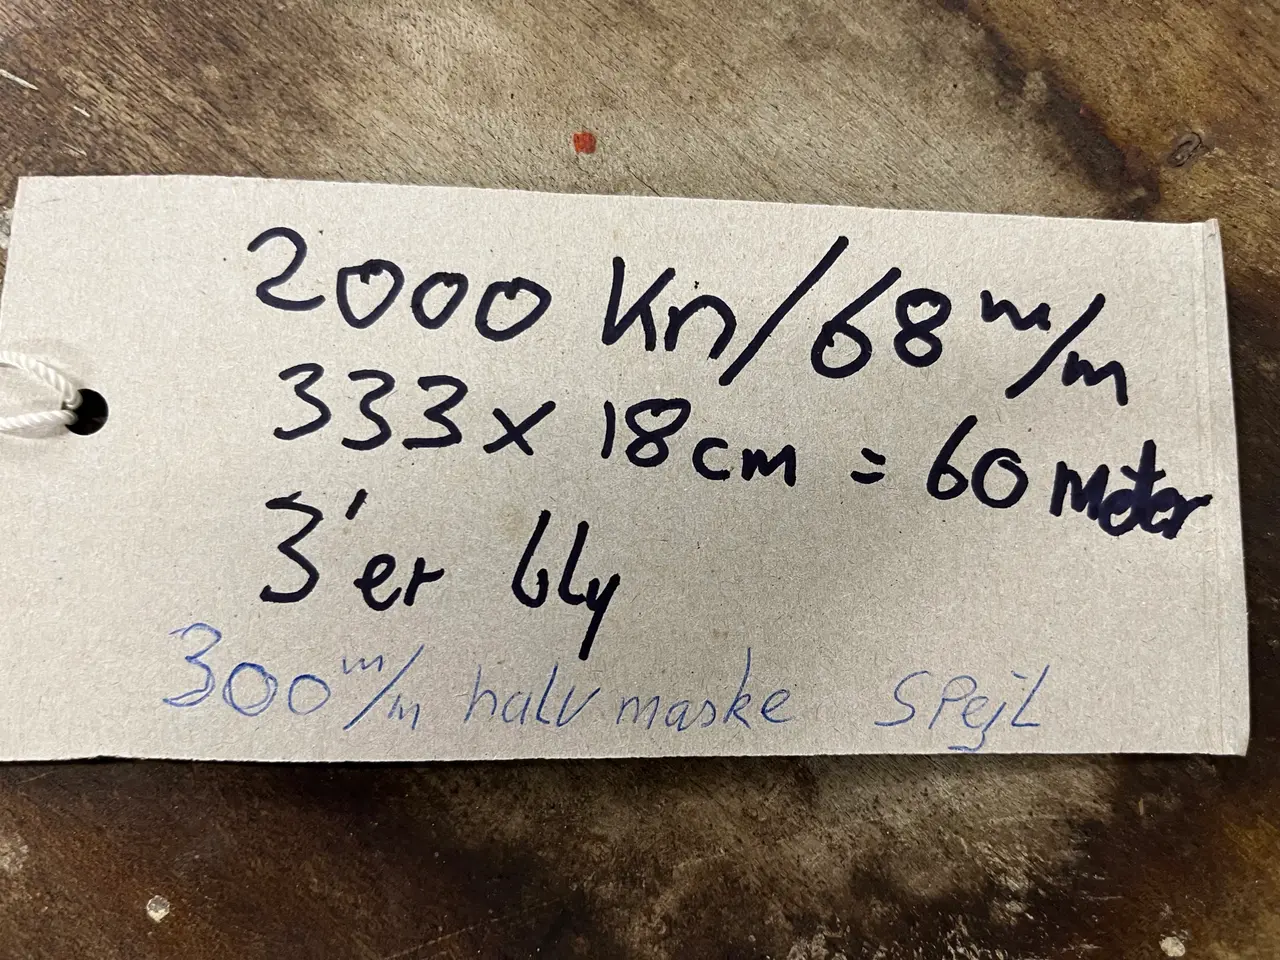 2000 Kn/68 m/m
333 x 18 cm = 60 meter
3'er bly
300 m/m halv maske SPejL